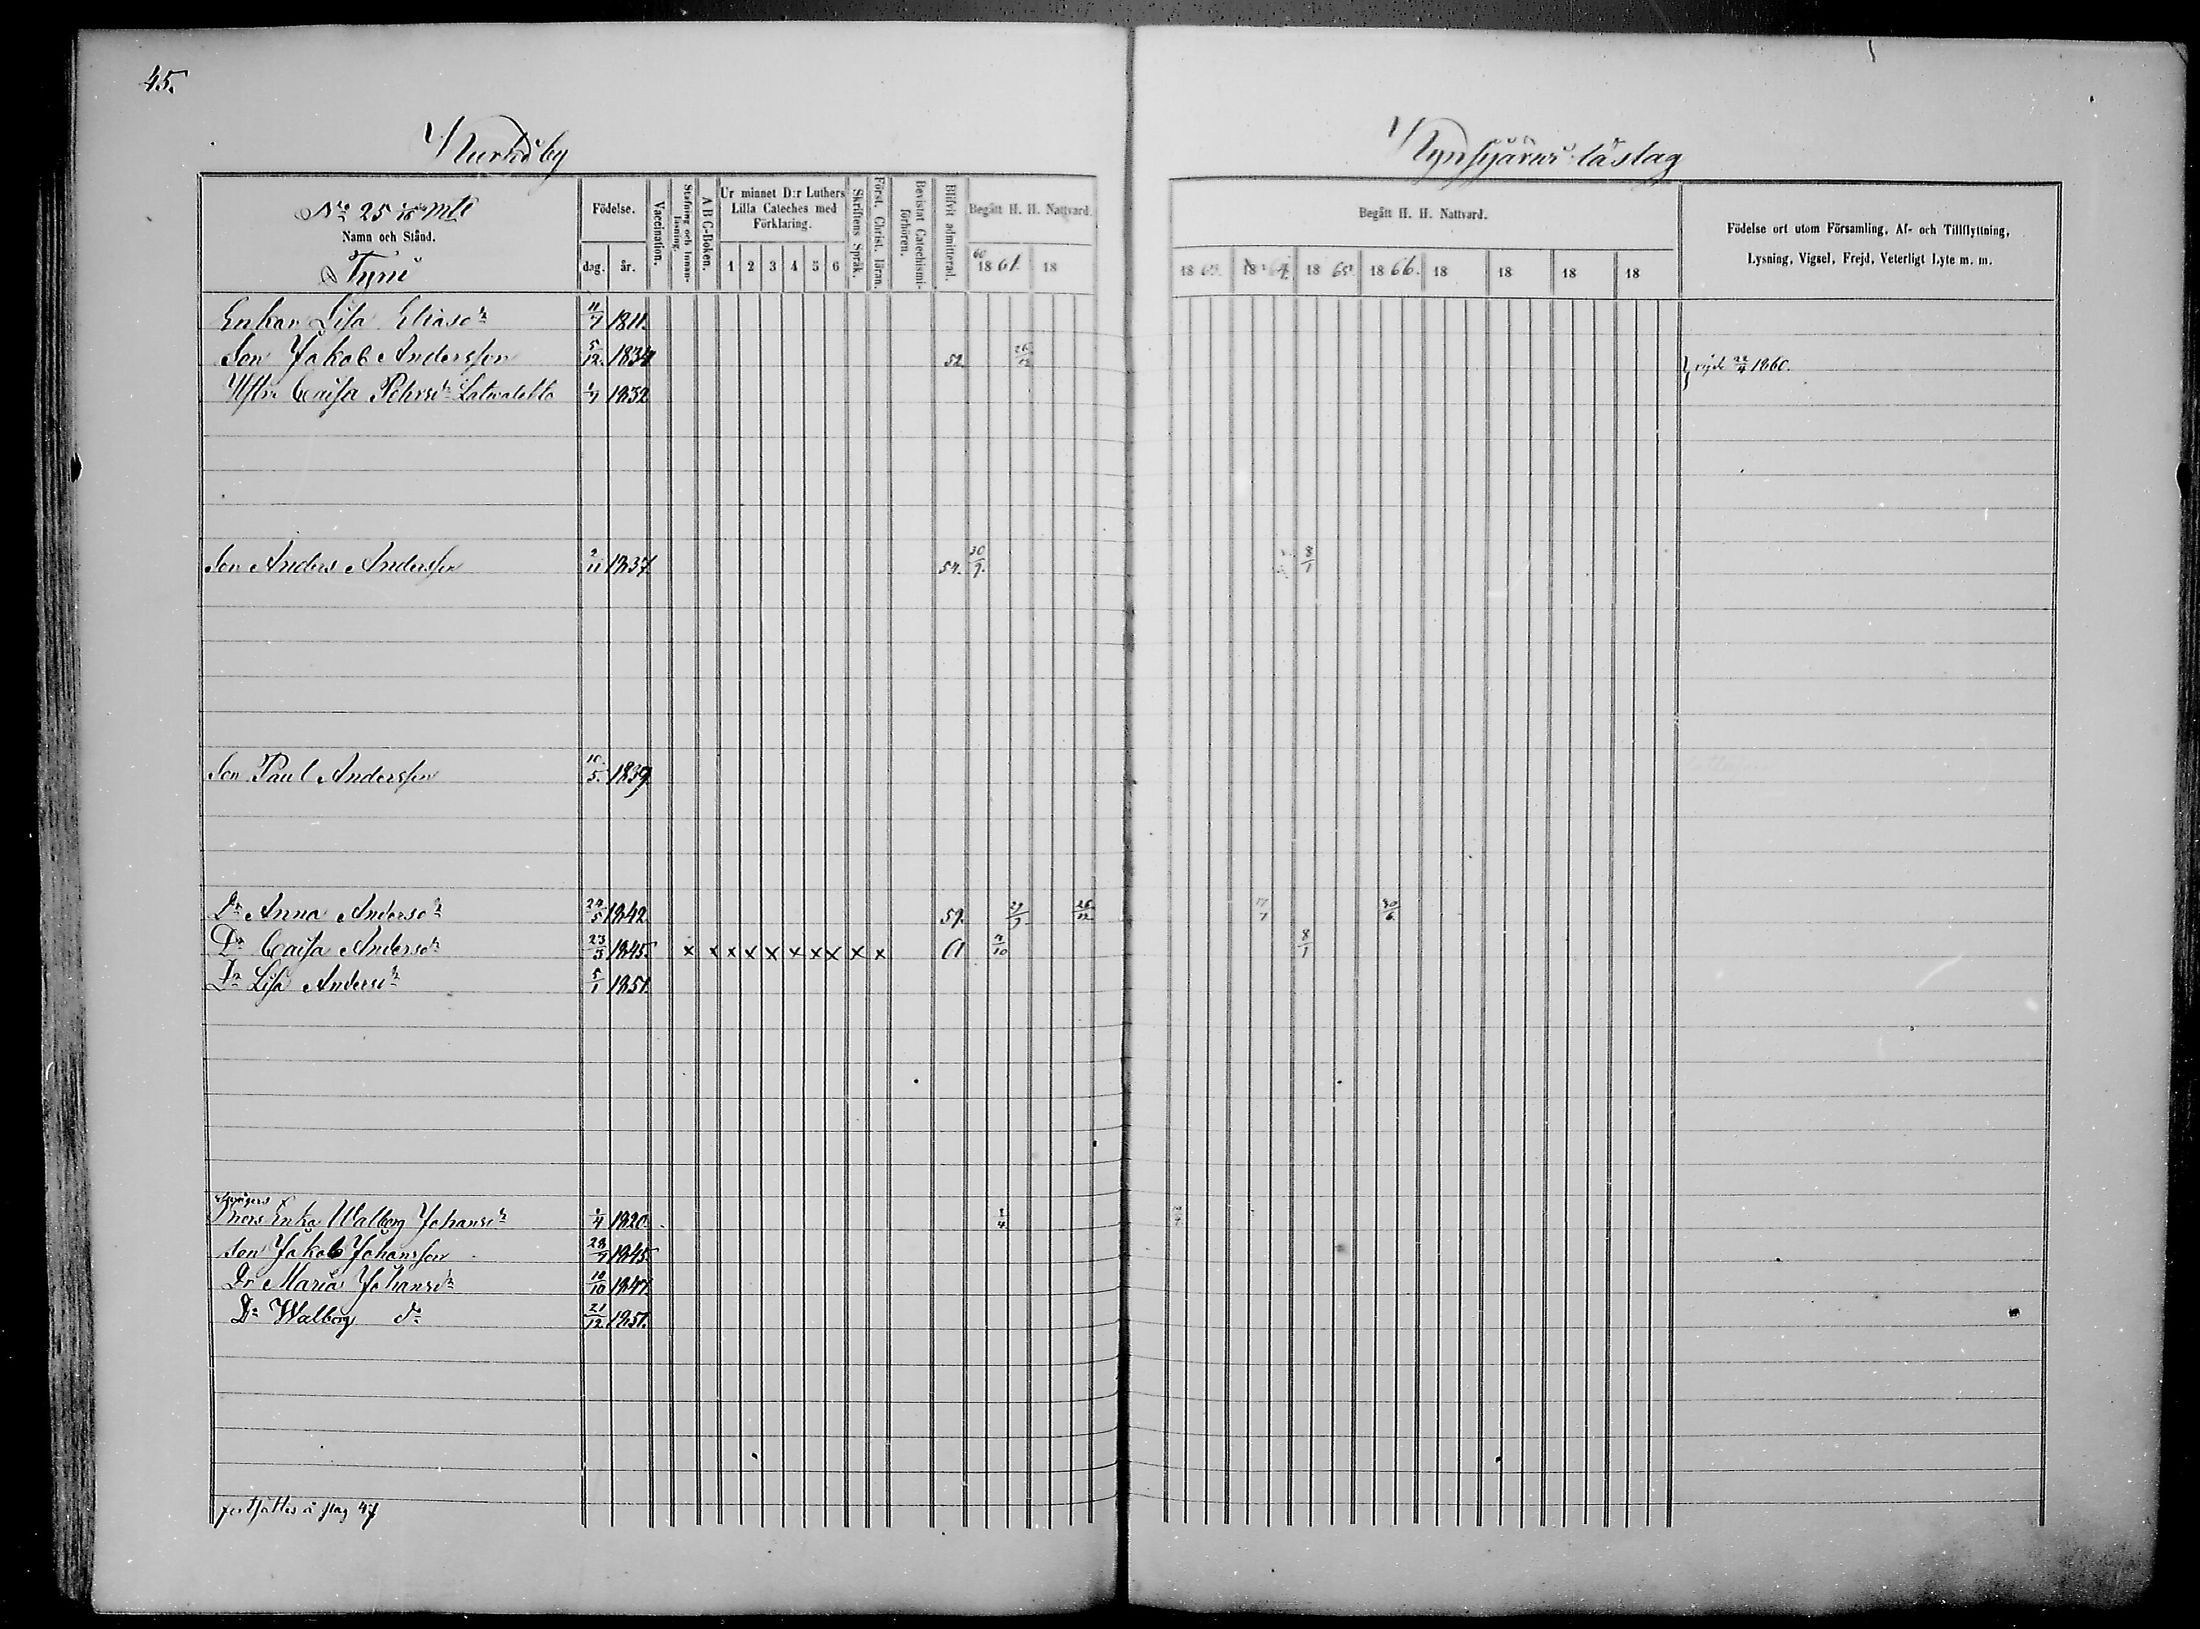 45.
No 25
Namn och Stånd.
Födelse.
dag. år.
Vaccination.
Stafning och Innan-läsning.
A B C-Boken.
Ur minnet D:r Luthers Lilla Cateches med Förklaring.
1 2 3 4 5 6
Skriftens Språk.
Först. Christ. läran.
Bevistat Catechismi-förhören.
Blifvit admitterad.
Begått H. H. Nattvard.
60
18 61. 18
Begått H. H. Nattvard.
18 18 64. 18 65. 18 66. 18 18 18 18
Födelse ort utom Församling, Af- och Tillflyttning,
Lysning, Vigsel, Frejd, Veterligt Lyte m. m.
Enkan Lisa Eliasdr 11/7 1811.
Son Jakob Andersson 5/12. 1834 52. 22/4 1860.
Hstr Caisa 1/7 1832
Son Anders Andersson 2/11 1837. 54. 30/9. 8/1
Son Paul Andersson 10/5. 1839.
Dr Anna Andersdr 24/5 1842. 59. 26/12 30/6.
Dr Caisa Andersdr 23/5 1845. x x x x x x x x x x 7/10 8/1
Dr Lisa Andersdr 5/1 1851.
Enka Walborg Johansdr 1/4 1820.
Son Jakob Johansson 28/7 1845.
Dr Maria Johansdr 10/10 1847.
Dr Walborg do 21/12 1851.
fortsättes å pag 47